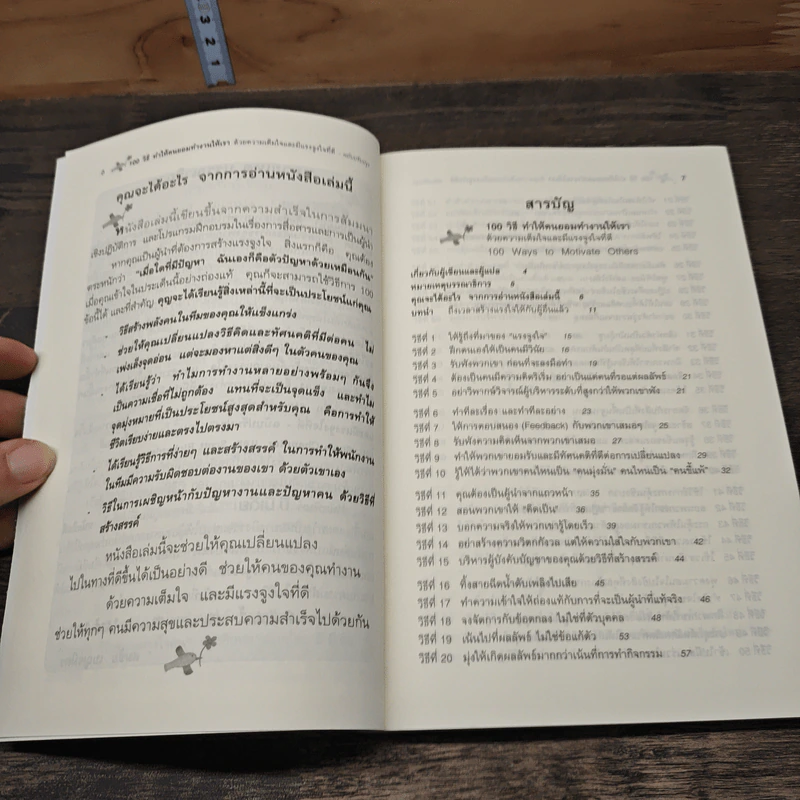 3 2 1
6 100 วิธี ทำให้คนยอมทำงานให้เรา ด้วยความเต็มใจและมีแรงจูงใจที่ดี
คุณจะได้อะไร จากการอ่านหนังสือเล่มนี้
หนังสือเล่มนี้เขียนขึ้นจากความสำเร็จในการสัมมนา
เชิงปฏิบัติการ และโปรแกรมฝึกอบรมในเรื่องการสื่อสารและการเป็นผู้นำ
หากคุณเป็นผู้นำที่ต้องการสร้างแรงจูงใจ สิ่งแรกก็คือ คุณต้อง
ตระหนักว่า "เมื่อใดที่มีปัญหา ฉันเองก็คือตัวปัญหาด้วยเหมือนกัน"
เมื่อคุณเข้าใจในประเด็นนี้อย่างถ่องแท้ คุณก็จะสามารถใช้วิธีการ 100
ข้อนี้ได้ และที่สำคัญ คุณจะได้เรียนรู้สิ่งเหล่านี้ที่จะเป็นประโยชน์แก่คุณ
· วิธีสร้างพลังคนในทีมของคุณให้แข็งแกร่ง
· ช่วยให้คุณเปลี่ยนแปลงวิธีคิดและทัศนคติที่มีต่อคน ไม่
เพ่งเล็งจุดอ่อน แต่จะมองหาแต่สิ่งดีๆ ในตัวคนของคุณ
· ได้เรียนรู้ว่า ทำไมการทำงานหลายอย่างพร้อมๆ กันจึง
เป็นความเชื่อที่ไม่ถูกต้อง แทนที่จะเป็นจุดแข็ง และทำไม
จุดมุ่งหมายที่เป็นประโยชน์สูงสุดสำหรับคุณ คือการทำให้
ชีวิตเรียบง่ายและตรงไปตรงมา
· ได้เรียนรู้วิธีการที่ง่ายๆ และสร้างสรรค์ ในการทำให้พนักงาน
ในทีมมีความรับผิดชอบต่องานของเขา ด้วยตัวเขาเอง
· วิธีในการเผชิญหน้ากับปัญหางานและปัญหาคน ด้วยวิธีที่
สร้างสรรค์
หนังสือเล่มนี้จะช่วยให้คุณเปลี่ยนแปลง
ไปในทางที่ดีขึ้นได้เป็นอย่างดี ช่วยให้คนของคุณทำงาน
ด้วยความเต็มใจ และมีแรงจูงใจที่ดี
ช่วยให้ทุกๆ คนมีความสุขและประสบความสำเร็จไปด้วยกัน
7
สารบัญ
100 วิธี ทำให้คนยอมทำงานให้เรา
ด้วยความเต็มใจและมีแรงจูงใจที่ดี
100 Ways to Motivate Others
เกี่ยวกับผู้เขียนและผู้แปล 4
หมายเหตุบรรณาธิการ 5
คุณจะได้อะไร จากการอ่านหนังสือเล่มนี้ 6
บทนำ ถึงเวลาสร้างแรงใจให้กับผู้อื่นแล้ว 11
วิธีที่ 1 ได้รู้ถึงที่มาของ "แรงจูงใจ" 15
วิธีที่ 2 ฝึกตนเองให้เป็นคนมีวินัย 16
วิธีที่ 3 รับฟังพวกเขา ก่อนที่จะลงมือทำ 19
วิธีที่ 4 ต้องเป็นคนมีความคิดริเริ่ม อย่าเป็นแต่คนที่รอแต่ผลลัพธ์ 21
วิธีที่ 5 อย่าวิพากษ์วิจารณ์ผู้บริหารระดับที่สูงกว่าให้พวกเขาฟัง 21
วิธีที่ 6 ทำทีละเรื่อง และทำทีละอย่าง 23
วิธีที่ 7 ให้การตอบสนอง (Feedback) กับพวกเขาเสมอๆ 25
วิธีที่ 8 รับฟังความคิดเห็นจากพวกเขาเสมอ 27
วิธีที่ 9 ทำให้พวกเขายอมรับและมีทัศนคติที่ดีต่อการเปลี่ยนแปลง 29
วิธีที่ 10 รู้ให้ได้ว่าพวกเขาคนไหนเป็น "คนมุ่งมั่น" คนไหนเป็น "คนขี้แพ้" 32
วิธีที่ 11 คุณต้องเป็นผู้นำจากแถวหน้า 35
วิธีที่ 12 สอนพวกเขาให้ "คิดเป็น" 36
วิธีที่ 13 บอกความจริงให้พวกเขารู้โดยเร็ว 39
วิธีที่ 14 อย่าสร้างความวิตกกังวล แต่ให้ความใส่ใจกับพวกเขา 42
วิธีที่ 15 บริหารผู้บังคับบัญชาของคุณด้วยวิธีที่สร้างสรรค์ 44
วิธีที่ 16 ทิ้งสายฉีดน้ำดับเพลิงไปเสีย 45
วิธีที่ 17 ทำความเข้าใจให้ถ่องแท้กับการที่จะเป็นผู้นำที่แท้จริง 46
วิธีที่ 18 จงจัดการกับข้อตกลง ไม่ใช่ที่ตัวบุคคล 48
วิธีที่ 19 เน้นไปที่ผลลัพธ์ ไม่ใช่ข้อแก้ตัว 53
วิธีที่ 20 มุ่งให้เกิดผลลัพธ์มากกว่าเน้นที่การทำกิจกรรม 57